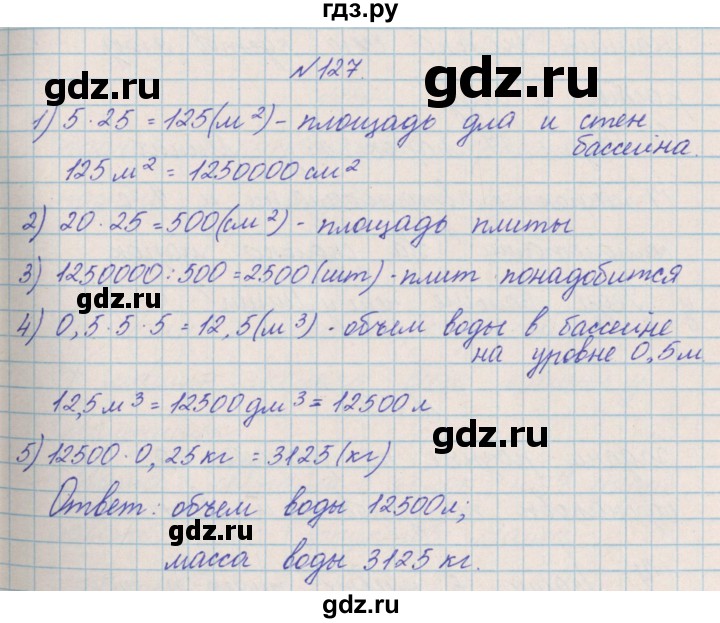 гдз.ру
№127.
gdz.ru
gdz.ru
1) 5 · 25 = 125 (м²) - площадь дла и стен
бассейна.
125 м² = 1250000 см²
2) 20 · 25 = 500 (см²) - площадь плиты
3) 1250000 : 500 = 2500 (шт) - плит понадобится
gdz.ru
4) 0,5 · 5 · 5 = 12,5 (м³) - объем воды в бассейне
на уровне 0,5 м.
12,5 м³ = 12500 дм³ = 12500 л
gdz.ru
5) 12500 · 0,25 кг = 3125 (кг)
Ответ: объем воды 12500 л;
gdz.ru
масса воды 3125 кг.
gdz.ru